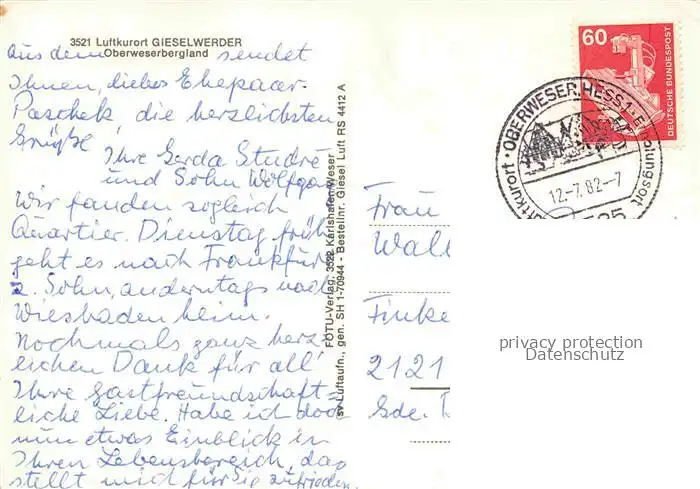 3521 Luftkurort GIESELWERDER
Oberweserbergland
Aus dem sendet
Ihnen, liebes Ehepaar
Paschek, die herzlichsten
Grüße
Ihre Gerda Studre
und Sohn Wolfgang
Wir fanden sogleich
Quartier. Dienstag früh
geht es nach Frankfurt
z. Sohn, anderntags nach
Wiesbaden heim.
Nochmals ganz herz-
lichen Dank für all'
Ihre Gastfreundschaft =
liche Liebe. Habe ich doch
nun etwas Einblick in
Ihren Lebensbereich, das
stellt mich für Sie zufrieden.
FOTU-Verlag, 3522 Karlshafen/Weser
sv Luftaufn., gen. SH 1-70944 - Bestellnr. Giesel Luft RS 4412 A
60
DEUTSCHE BUNDESPOST
Luftkurort · OBERWESER, HESS 1 · Erholungsort
12.-7.82-7
3525
Frau
Wall
Finke
2121
Gde.
privacy protection
Datenschutz